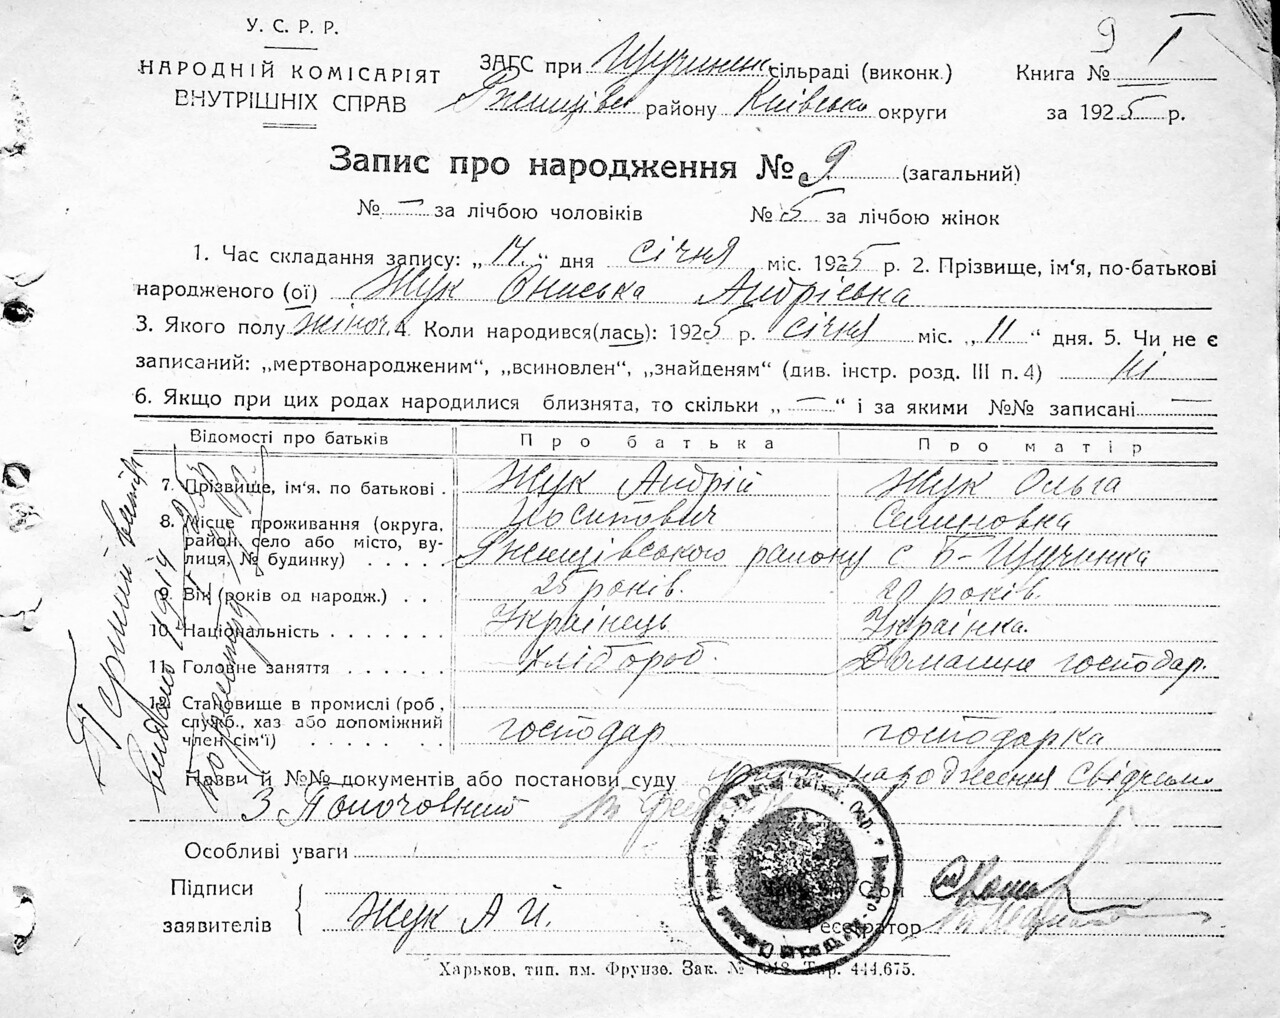 У. С. Р. Р.
НАРОДНІЙ КОМІСАРІЯТ
ВНУТРІШНІХ СПРАВ
ЗАГС при Щучинк сільраді (виконк.)
Ржищівськ району Київська округи
9 1
Книга №
за 1925 р.
Запис про народження № 9 (загальний)
№ — за лічбою чоловіків № 5 за лічбою жінок
1. Час складання запису: „14“ дня січня міс. 1925 р. 2. Прізвище, ім'я, по-батькові
народженого (ої) Жук Ониська Андрієвна
3. Якого полу жіноч. 4. Коли народився(лась): 1925 р. січня міс. „11“ дня. 5. Чи не є
записаний: „мертвонародженим“, „всиновлен“, „знайденям“ (див. інстр. розд. III п. 4) ні
6. Якщо при цих родах народилися близнята, то скільки „—“ і за якими №№ записані —
Відомості про батьків Про батька Про матір
7. Прізвище, ім'я. по батькові . Жук Андрій Жук Ольга
Йосипович Семиновка
8. Місце проживання (округа,
район, село або місто, ву-
лиця, № будинку) . . . . Ржищівського району с Б-Щучинка
9. Вік (років од народж.) . . 25 років. 20 років.
10. Національність . . . . . . . Українець Українка.
11. Головне заняття . . . . . . хлібороб. Домашне господар.
12. Становище в промислі (роб.,
служб., хаз або допоміжний
член сім'ї) . . . . . . . господар господарка
Назви й №№ документів або постанови суду народження свідчили
З Полочовний
Особливі уваги
Підписи
заявителів Жук А Й.
Реєстратор
Харьков, тип. им. Фрунзе. Зак. № Тир. 444.675.
Перший витяг
видано